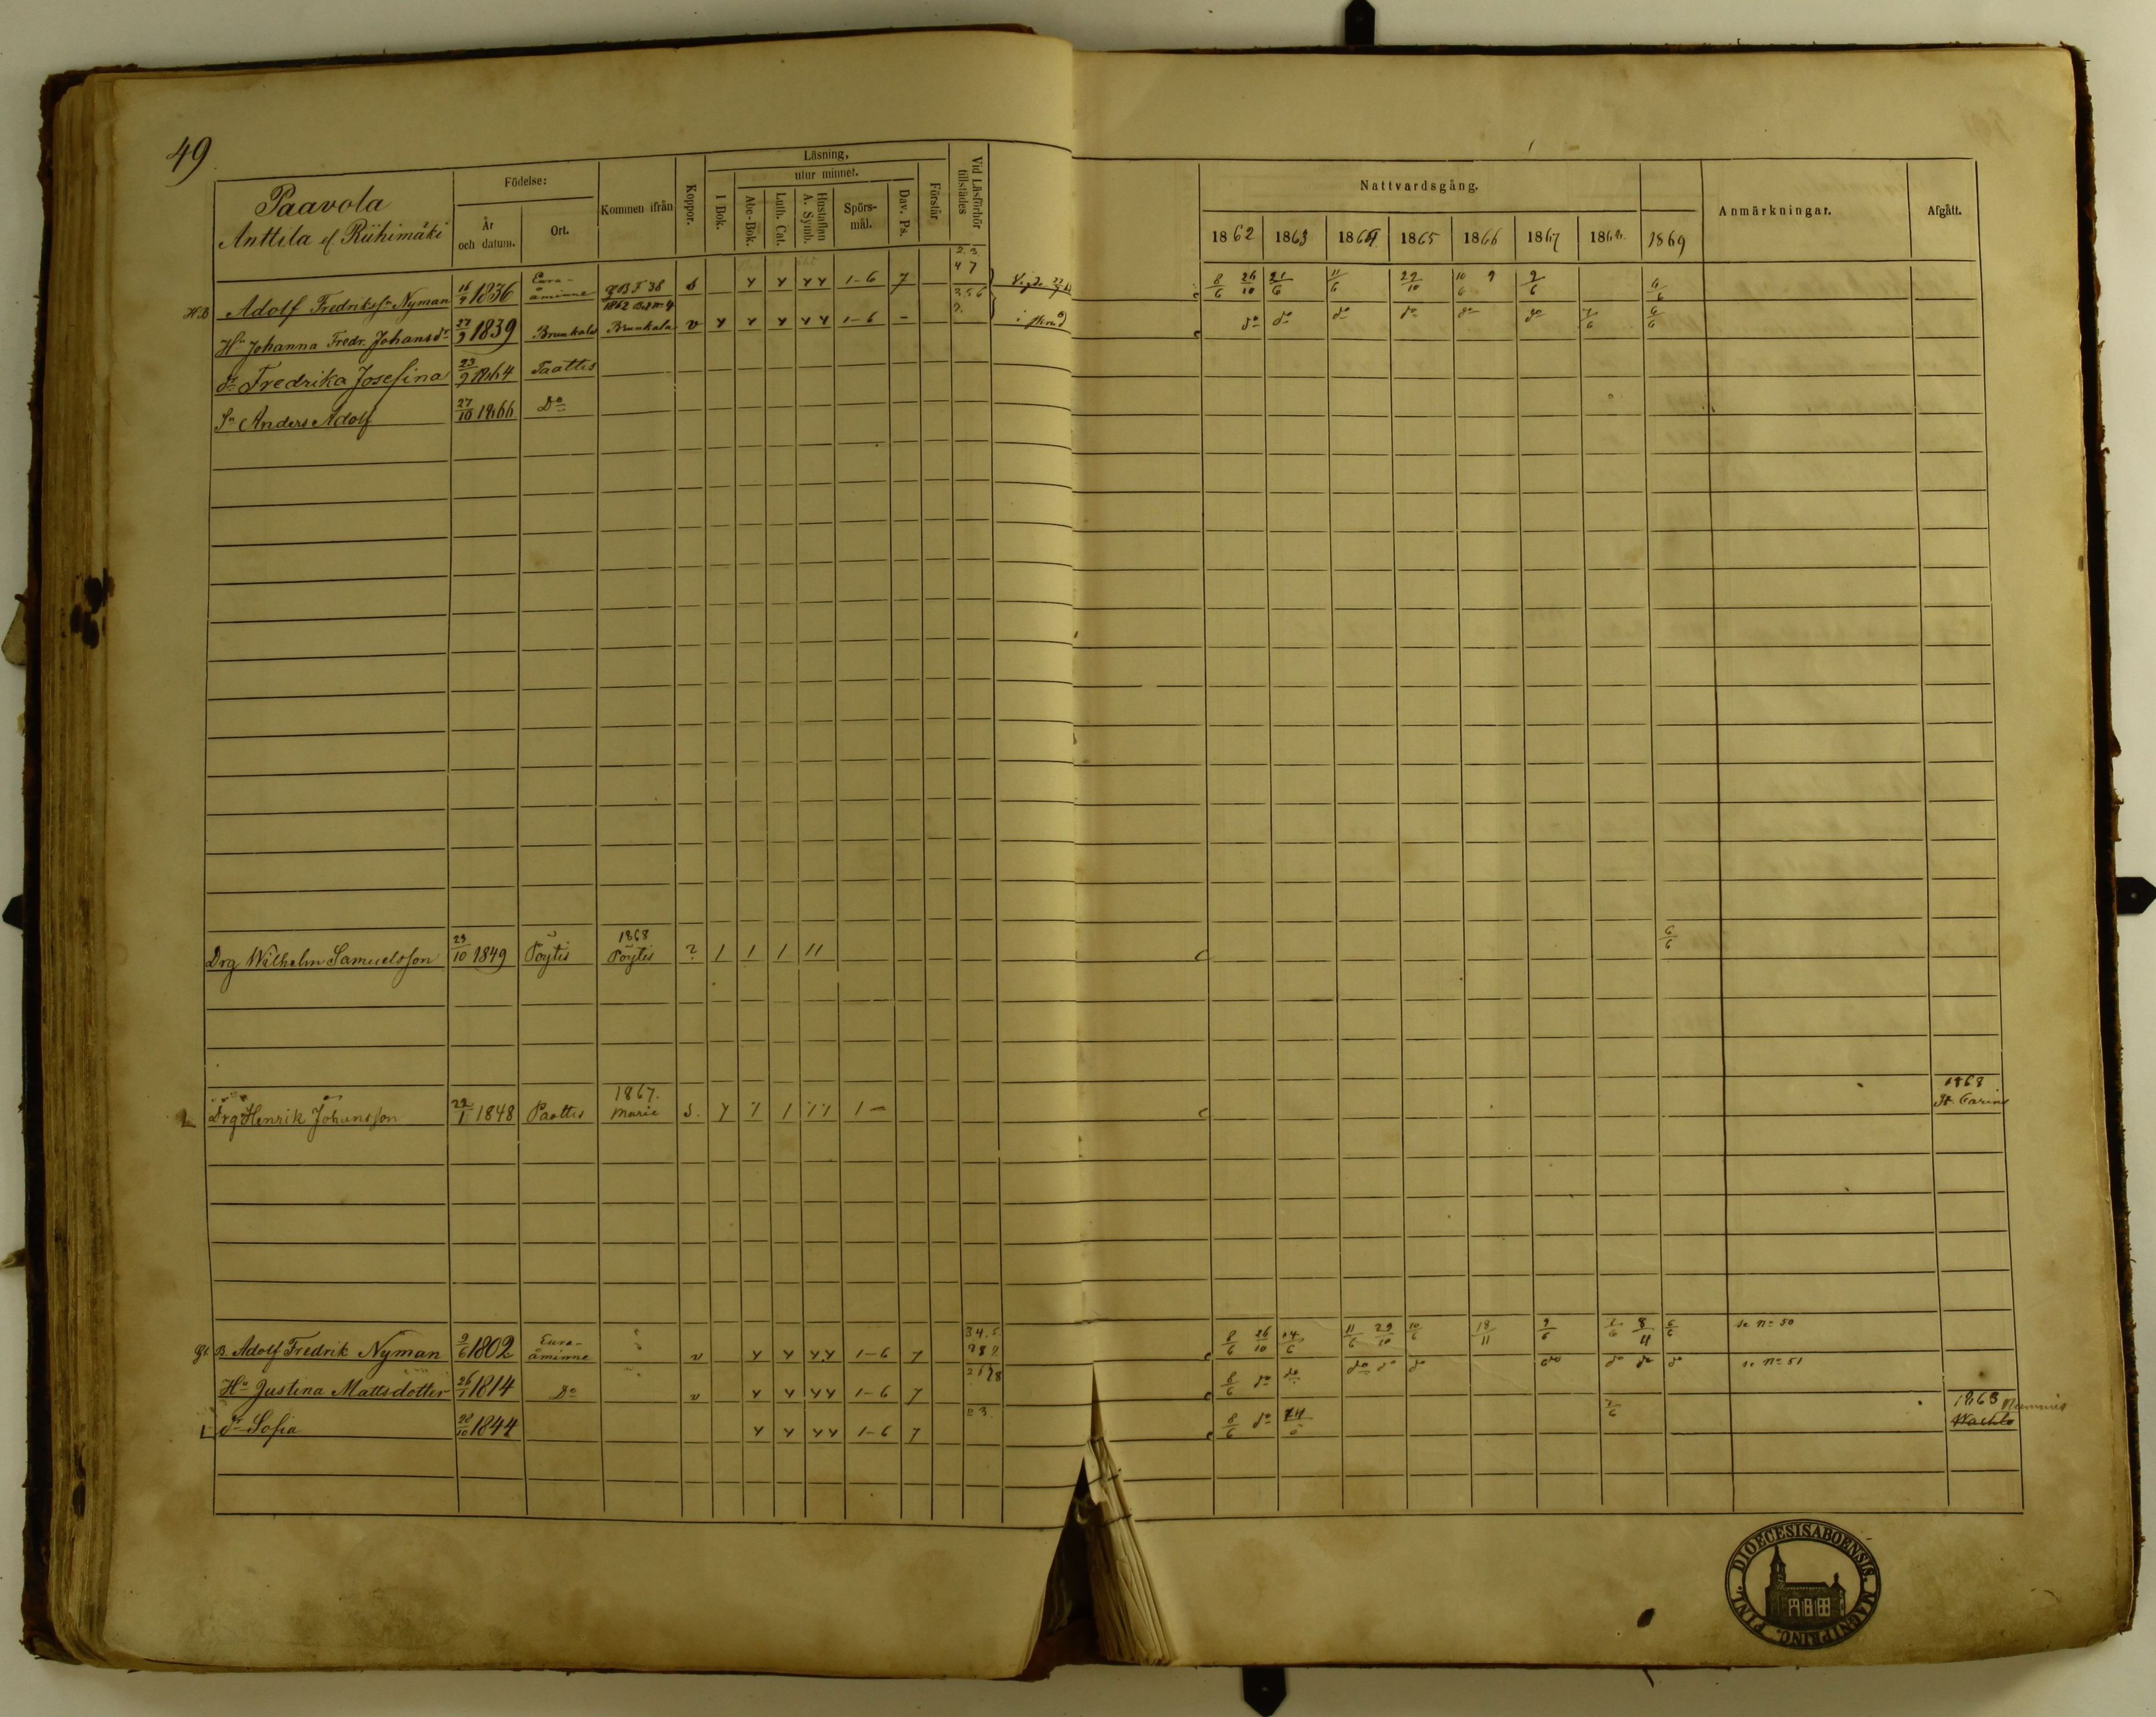 49
Paavola
Anttila el. Riihimäki
Födelse:
År och datum.
Ort.
Kommen ifrån
Koppor.
Läsning,
utur minnet.
I Bok.
Abc-Bok.
Luth. Cat.
Hustaflan A. Symb.
Spörs-mål.
Dav. Ps.
Förstår
Vid Läsförhör tillstädes
Nattvardsgång.
1862 1863 1864 1865 1866 1867 1868 1869
Anmärkningar.
Afgått.
H.B Adolf Fredrikss. Nyman 16/9 1836 Eura-åminne 1-6 7 8/6 26/10 21/6 11/6 29/10 2/6 6/6
Hu Johanna Fredr. Johansdr 27/9 1839 Brunkala Brunkala v 1-6 - do do do do do do 7/6 6/6
dr Fredrika Josefina 23/9 1864 Paattis
Sn Anders Adolf 27/10 1866 Do
Drg Wilhelm Samuelsson 23/10 1849 Pöytis 1868 Pöytis ? 1 1 1 11 6/6
L Drg Henrik Johansson 29/1 1848 Paattis 1867. Marie s. 1868 St. Carins
B. Adolf Fredrik Nyman 9/6 1802 Eura-åminne v 1-6 7 8/6 26/10 14/6 11/6 29/10 10/6 18/11 2/6 8/11 6/6 se no 50
Hu Justina Mattsdotter 26/1 1814 Do v 1-6 7 8/6 do do do do do do do do do se no 51
L dr Sofia 28/10 1844 1-6 7 8/6 do 7/6 1868 Nummis
FINL. DIOECESIS ABOENSIS. MAGNI PRINC.